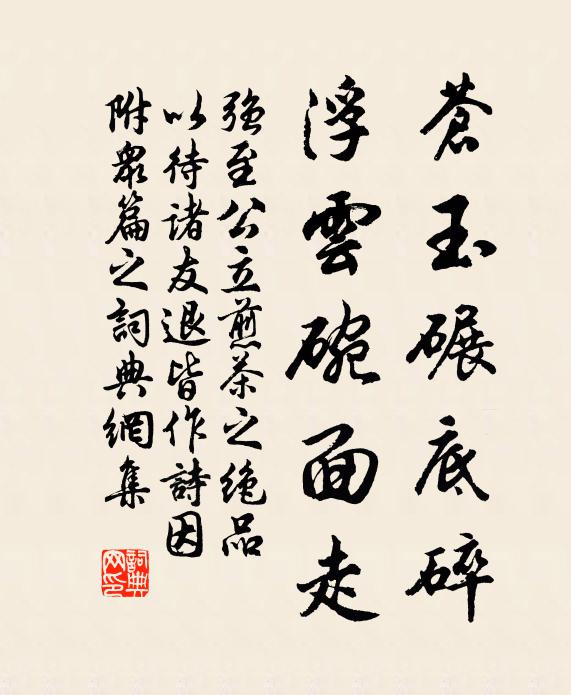 蒼玉碾底碎
浮雲碗面走
強至公立煎茶之絶品
以待諸友退皆作詩因
附衆篇之詞典網集
詞典网印